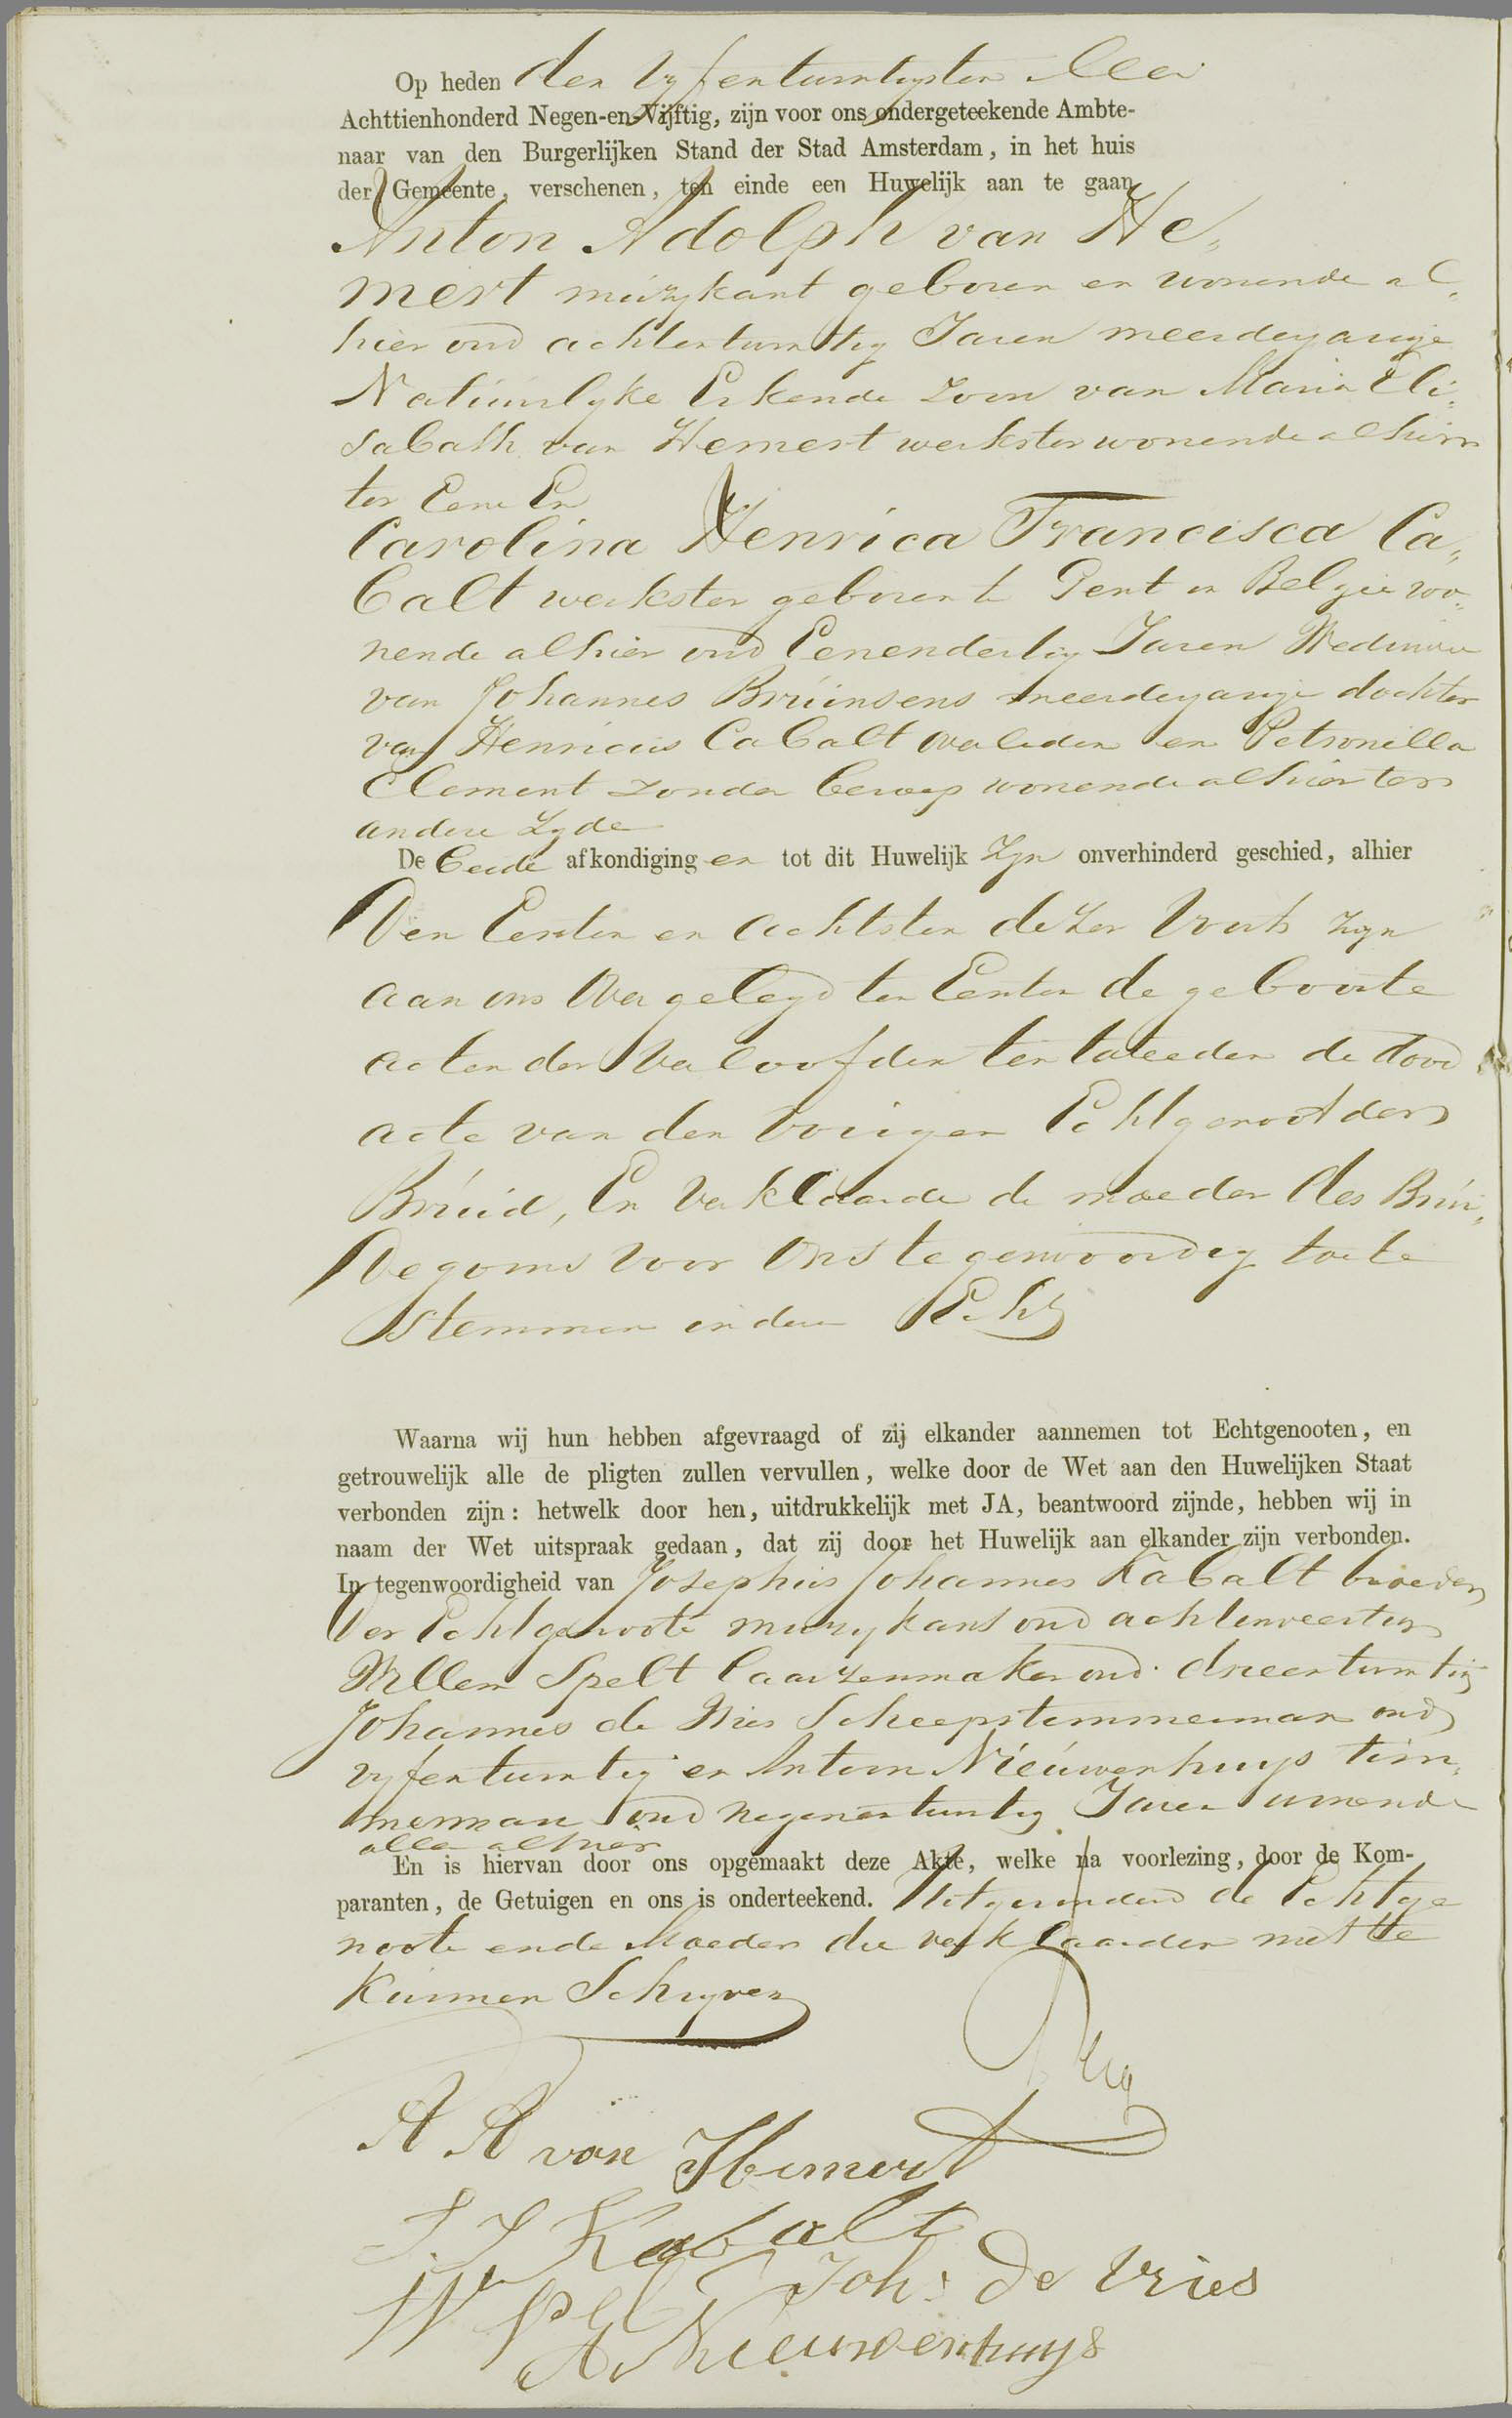 Op heden den Vyfentwintigsten Mei
Achttienhonderd Negen-en-Vijftig, zijn voor ons ondergeteekende Ambte-
naar van den Burgerlijken Stand der Stad Amsterdam, in het huis
der Gemeente, verschenen, ten einde een Huwelijk aan te gaan
Anton Adolph van He„
mert muzykant geboren en wonende al„
hier oud achtentwintig Jaren meerderjarige
Natuurlyke Erkende zoon van Maria Eli„
sabath van Hemert werkster wonende alhier
ter Eene En
Carolina Henrica Francisca Ca„
balt werkster geboren te Gent in Belgie wo„
nende alhier oud Eenendertig Jaren Weduwe
van Johannes Bruinsens meerderjarige dochter
van Henricus Cabalt overleden en Petronilla
Clement zonder beroep wonende alhier ter
andere Zyde
De beide afkondiging en tot dit Huwelijk Zyn onverhinderd geschied, alhier
Den Eersten en achtsten dezer Voorts zyn
aan ons Overgelegd ten Eersten de geboorte
acten der Verloofden ten tweeden de dood
acte van den vorigen Echtgenoot der
Bruid, En Verklaarde de moeder des Brui„
degoms voor Ons tegenwoordig toe te
stemmen in deze Echt
Waarna wij hun hebben afgevraagd of zij elkander aannemen tot Echtgenooten, en
getrouwelijk alle de pligten zullen vervullen, welke door de Wet aan den Huwelijken Staat
verbonden zijn: hetwelk door hen, uitdrukkelijk met JA, beantwoord zijnde, hebben wij in
naam der Wet uitspraak gedaan, dat zij door het Huwelijk aan elkander zijn verbonden.
In tegenwoordigheid van Josephus Johannes Kabalt broeder
der Echtgenoote muzykant oud achtenveertig
Willem Spelt laarzenmaker oud drieentwintig
Johannes de Vries Scheepstimmerman oud
vyfentwintig en Antoon Nieuwenhuys tim„
merman oud negenentwintig Jaren wonende
alle alhier
En is hiervan door ons opgemaakt deze Akte, welke na voorlezing, door de Kom-
paranten, de Getuigen en ons is onderteekend. Uitgezonderd de Echtge
noote en de Moeder die verklaarden niet te
kunnen Schryven
A A van Hemert
J. J Kabalt
W Spelt Joh: de Vries
A Nieuwenhuys